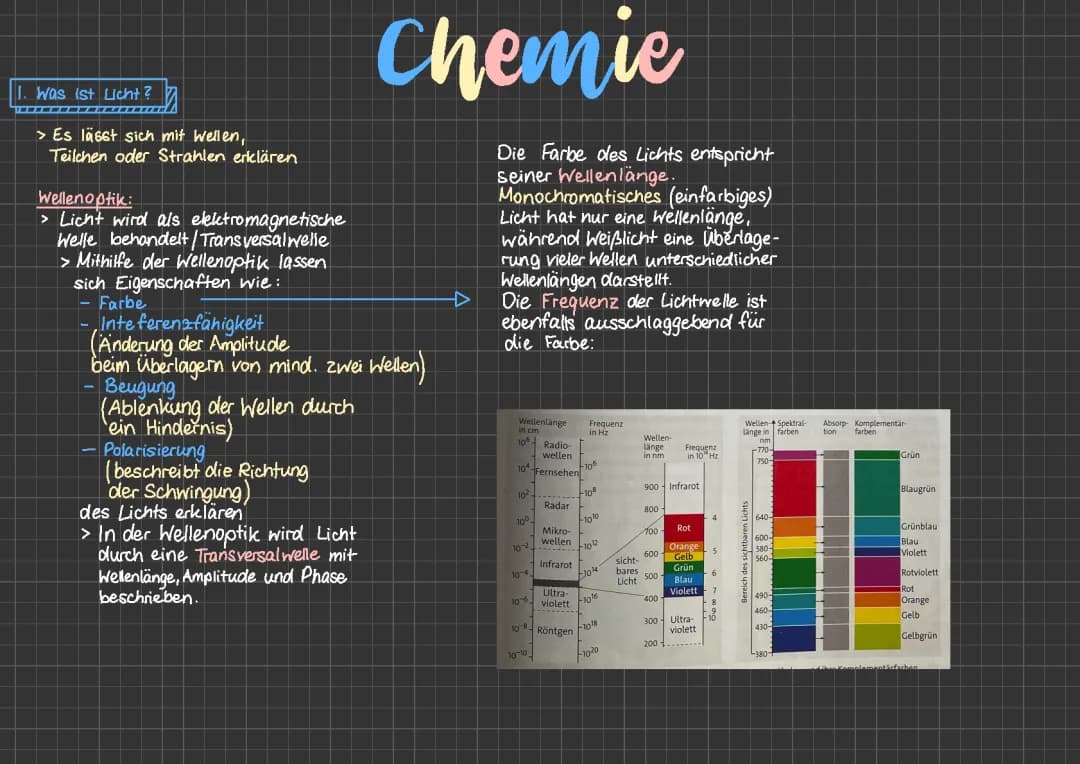 Chemie
1. Was ist Licht?
> Es lässt sich mit Wellen,
Teilchen oder Strahlen erklären
Wellenoptik:
> Licht wird als elektromagnetische
Welle behandelt/Transversalwelle
> Mithilfe der Wellenoptik lassen
sich Eigenschaften wie:
- Farbe
- Inteferenzfähigkeit
(Änderung der Amplitude
beim Überlagern von mind. zwei Wellen)
- Beugung
(Ablenkung der Wellen durch
ein Hindernis)
- Polarisierung
(beschreibt die Richtung
der Schwingung)
des Lichts erklären
> In der Wellenoptik wird Licht
durch eine Transversalwelle mit
Wellenlänge, Amplitude und Phase
beschrieben.
Die Farbe des Lichts entspricht
seiner Wellenlänge.
Monochromatisches (einfarbiges)
Licht hat nur eine Wellenlänge,
während Weißlicht eine Überlage-
rung vieler Wellen unterschiedlicher
Wellenlängen darstellt.
Die Frequenz der Lichtwelle ist
ebenfalls ausschlaggebend für
die Farbe:
Wellenlänge
in cm
Frequenz
in Hz
10⁶
Radio-
wellen
10⁴
Fernsehen
10⁶
10²
10⁸
Radar
10⁰
10¹⁰
Mikro-
wellen
10⁻²
10¹²
Infrarot
10⁻⁴
10¹⁴
Ultra-
violett
10⁻⁶
10¹⁶
10⁻⁸
Röntgen
10¹⁸
10⁻¹⁰
10²⁰
sicht-
bares
Licht
Wellen-
länge
in nm
Frequenz
in 10¹⁴ Hz
900
Infrarot
800
4
700
Rot
Orange
5
600
Gelb
Grün
6
500
Blau
Violett
7
400
8
9
300
Ultra-
violett
10
200
Wellen-
länge in
nm
Spektral-
farben
Absorp-
tion
Komplementär-
farben
Bereich des sichtbaren Lichts
770
750
640
600
580
560
490
460
430
380
Grün
Blaugrün
Grünblau
Blau
Violett
Rotviolett
Rot
Orange
Gelb
Gelbgrün
Komplementärfarben